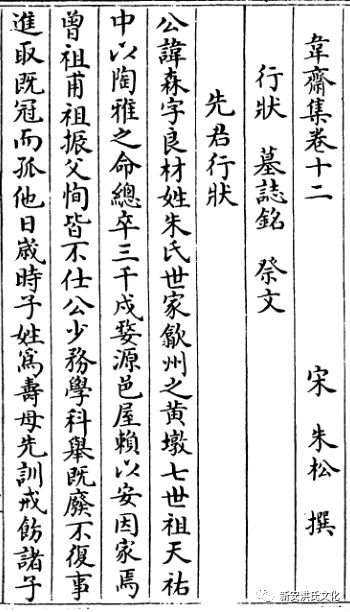 韋齋集卷十二
宋 朱松 撰
行狀 墓誌銘 祭文
先君行狀
公諱森字良材姓朱氏世家歙州之黄墩七世祖天祐
中以陶雅之命總卒三千戍婺源邑屋賴以安因家焉
曾祖甫祖振父恂皆不仕公少務學科舉既廢不復事
進取既冠而孤他日歲時子姓為壽母先訓戒飭諸子
新安洪氏文化